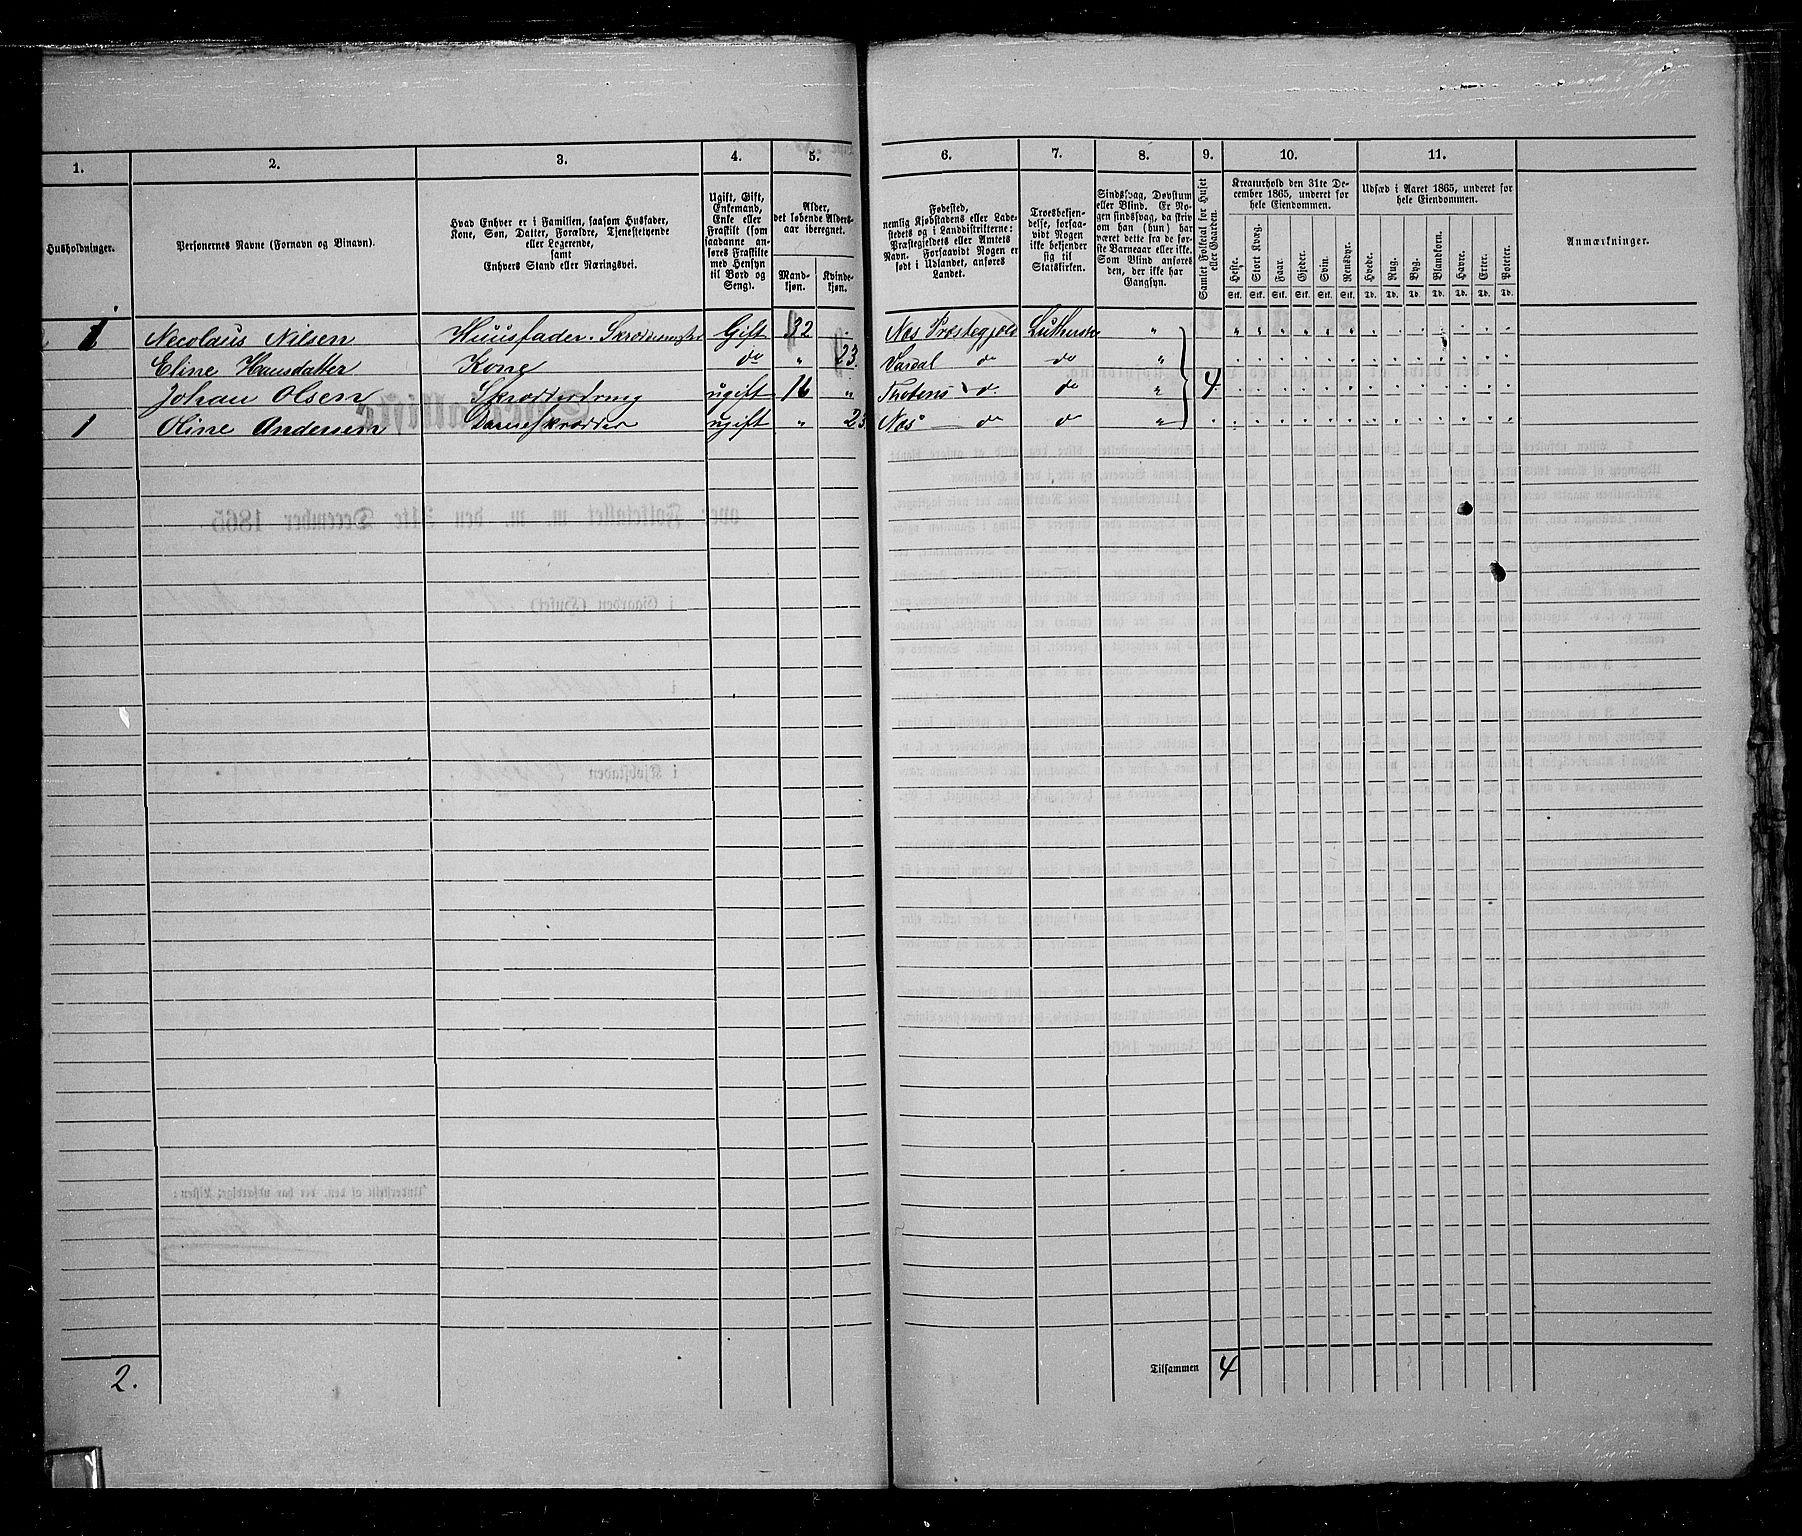 1. 2. 3. 4. 5. 6. 7. 8. 9. 10. 11.
Husholdninger.
Personernes Navne (Fornavn og Vinavn).
Hvad Enhver er i Familien, saasom Husfader,
Kone, Søn, Datter, Forældre, Tjenestetyende
eller Logerende,
samt
Enhvers Stand eller Næringsvei.
Ugift, Gift,
Enkemand,
Enke eller
Fraskilt (som
saadanne an-
føres Fraskilte
med Hensyn
til Bord og
Seng).
Alder,
det løbende Alders-
aar iberegnet.
Mand-
kjøn.
Kvinde-
kjøn.
Fødested,
nemlig Kjøbstadens eller Lade-
stedets og i Landdistrikterne:
Præstegjeldets eller Amtets
Navn. Forsaavidt Nogen er
født i Udlandet, anføres
Landet.
Troesbekjen-
delse, forsaa-
vidt Nogen
ikke bekjender
sig til
Statskirken.
Sindssvag, Døvstum
eller Blind. Er No-
gen sindssvag, da skriv
om han (hun) har
været dette fra de før-
ste Barneaar eller ikke.
Som Blind anføres
den, der ikke har
Gangsyn.
Samlet Folketal for Huset
eller Gaarden.
Kreaturhold den 31te De-
cember 1865, underet for
hele Eiendommen.
Heste. Stort Kvæg. Faar. Gjeder. Svin. Rensdyr.
Stk. Stk. Stk. Stk. Stk. Stk.
Udsæd i Aaret 1865, underet for
hele Eiendommen.
Hvede. Rug. Byg. Blandkorn. Havre. Erter. Poteter.
Td. Td. Td. Td. Td. Td. Td.
Anmærkninger.
1 Necolaus Nilsen Huusfader. Gift 32 Næs Præstegjeld
Eline Hansdatter Kone do " 23. Vardal do do "
Johan Olsen ugift 16 " Thotens do do " 4
1 Oline Andersen Dameskrædder ugift " 23 Næs do do "
2.
Tilsammen 4